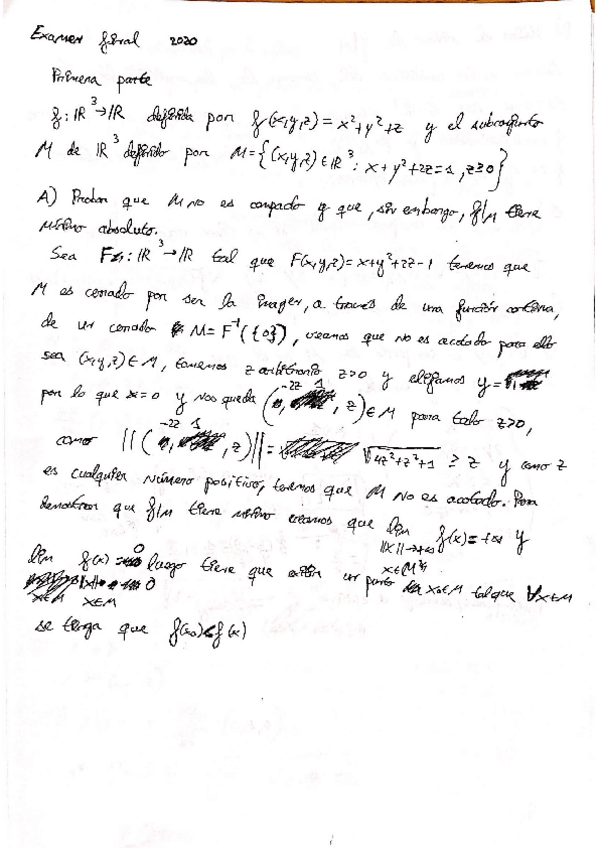 Examen final 2020
Primera parte
f: ℝ³→ℝ definida por f(x,y,z) = x²+y²+z y el subconjunto
M de ℝ³ definido por M={(x,y,z)∈ℝ³: x+y²+2z=1, z≥0}
A) Probar que M no es compacto y que, sin embargo, f|M tiene
mínimo absoluto.
Sea F: ℝ³→ℝ tal que F(x,y,z)=x+y²+2z-1 tenemos que
M es cerrado por ser la imagen, a través de una función continua,
de un cerrado M=F⁻¹({0}), veamos que no es acotado para ello
sea (x,y,z)∈M, tomemos z arbitrario z>0 y elijamos y=
por lo que x=0 y nos queda (-2z, 1, z)∈M para todo z>0,
como ||(-2z, 1, z)||= √4z²+z²+1 ≥ z y como z
es cualquier número positivo, tenemos que M no es acotado. Para
demostrar que f|M tiene mínimo veamos que lim f(x)=+∞ y
||x||→+∞
x∈M
lim f(x) = 0 luego tiene que existir un punto x₀∈M tal que ∀x∈M
x∈M x∈M
se tenga que f(x₀)≤f(x)